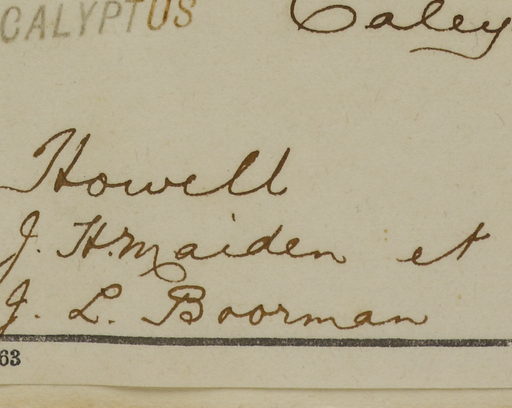 CALYPTUS Caley
Howell
J. H. Maiden et
J. L. Boorman
63